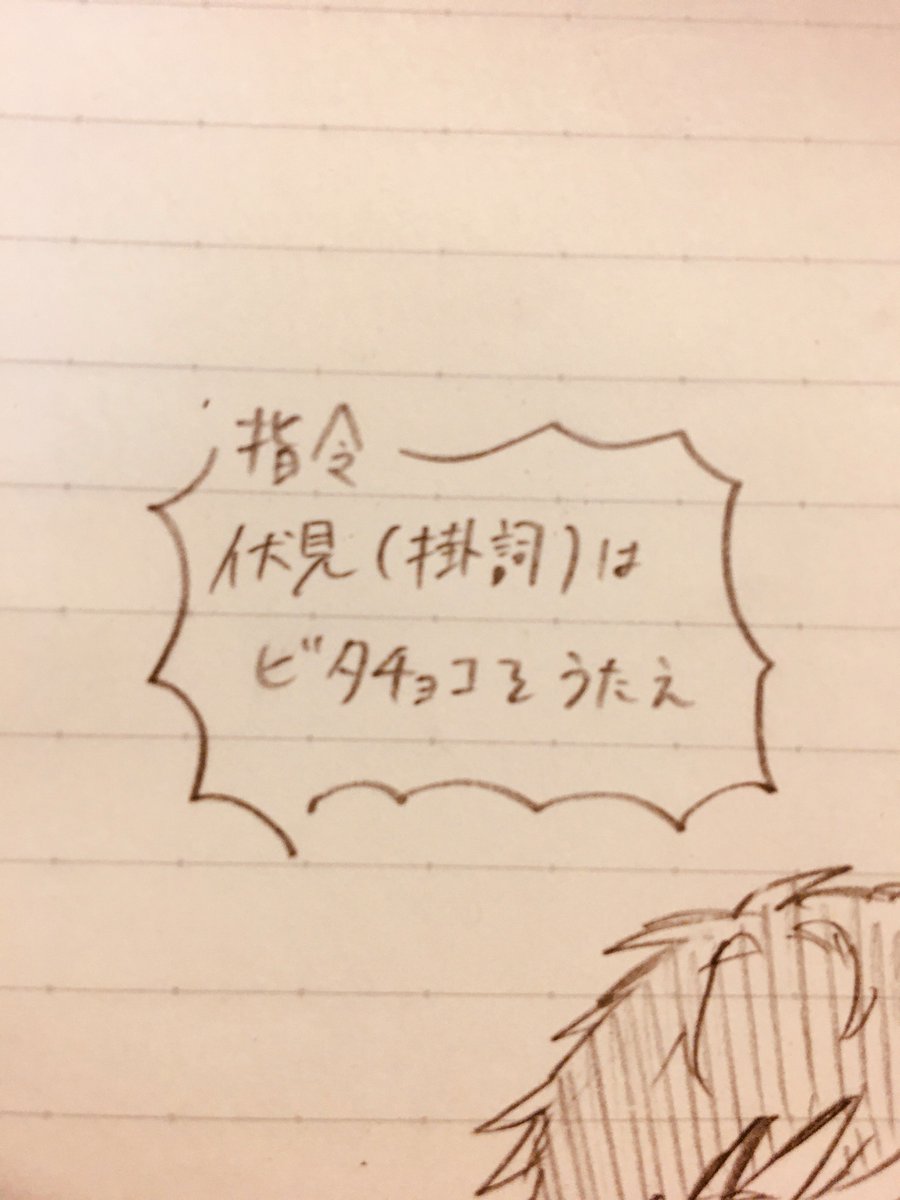 指令
伏見(掛詞)は
ビタチョコをうたえ